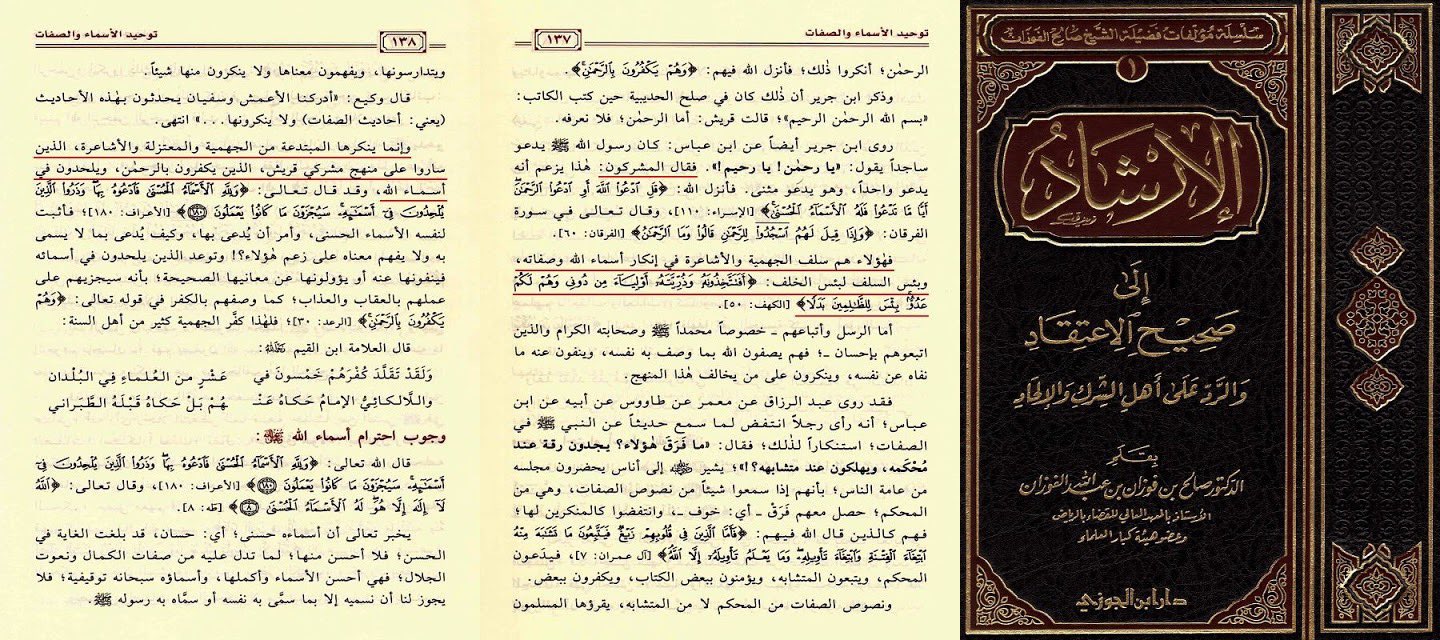 سلسلة مؤلفات فضيلة الشيخ صالح الفوزان
١
الإرشاد
إلى
صحيح الاعتقاد
والرد على أهل الشرك والإلحاد
بقلم
الدكتور صالح بن فوزان بن عبد الله الفوزان
الأستاذ بالمعهد العالي للقضاء بالرياض
وعضو هيئة كبار العلماء
دار ابن الجوزي
توحيد الأسماء والصفات
١٣٧
الرحمٰن؛ أنكروا ذٰلك؛ فأنزل الله فيهم: ﴿وَهُمْ يَكْفُرُونَ بِالرَّحْمَٰنِ﴾.
وذكر ابن جرير أن ذٰلك كان في صلح الحديبية حين كتب الكاتب:
«بسم الله الرحمٰن الرحيم»؛ قالت قريش: أما الرحمٰن؛ فلا نعرفه.
روى ابن جرير أيضاً عن ابن عباس: كان رسول الله ﷺ يدعو
ساجداً يقول: «يا رحمٰن! يا رحيم!». فقال المشركون: هٰذا يزعم أنه
يدعو واحداً، وهو يدعو مثنى. فأنزل الله: ﴿قُلِ ادْعُوا اللَّهَ أَوِ ادْعُوا الرَّحْمَٰنَ
أَيًّا مَّا تَدْعُوا فَلَهُ الْأَسْمَاءُ الْحُسْنَىٰ﴾ [الإسراء: ١١٠]، وقال تعالى في سورة
الفرقان: ﴿وَإِذَا قِيلَ لَهُمُ اسْجُدُوا لِلرَّحْمَٰنِ قَالُوا وَمَا الرَّحْمَٰنُ﴾ [الفرقان: ٦٠].
فهٰؤلاء هم سلف الجهمية والأشاعرة في إنكار أسماء الله وصفاته،
وبئس السلف لبئس الخلف: ﴿أَفَتَتَّخِذُونَهُ وَذُرِّيَّتَهُ أَوْلِيَاءَ مِن دُونِي وَهُمْ لَكُمْ
عَدُوٌّ بِئْسَ لِلظَّالِمِينَ بَدَلًا﴾ [الكهف: ٥٠].
أما الرسل وأتباعهم ـ خصوصاً محمداً ﷺ وصحابته الكرام والذين
اتبعوهم بإحسان ـ؛ فهم يصفون الله بما وصف به نفسه، وينفون عنه ما
نفاه عن نفسه، وينكرون على من يخالف هٰذا المنهج.
فقد روى عبد الرزاق عن معمر عن طاووس عن أبيه عن ابن
عباس؛ أنه رأى رجلاً انتفض لما سمع حديثاً عن النبي ﷺ في
الصفات؛ استنكاراً لذلك؛ فقال: «ما فَرَقَ هٰؤلاء؟ يجدون رقة عند
مُحْكَمه، ويهلكون عند متشابهه؟!»؛ يشير ﵁ إلى أناس يحضرون مجلسه
من عامة الناس؛ بأنهم إذا سمعوا شيئاً من نصوص الصفات، وهي من
المحكم؛ حصل معهم فَرَقَ ـ أي: خوف ـ، وانتفضوا كالمنكرين لها؛
فهم كالذين قال الله فيهم: ﴿فَأَمَّا الَّذِينَ فِي قُلُوبِهِمْ زَيْغٌ فَيَتَّبِعُونَ مَا تَشَابَهَ مِنْهُ
ابْتِغَاءَ الْفِتْنَةِ وَابْتِغَاءَ تَأْوِيلِهِ وَمَا يَعْلَمُ تَأْوِيلَهُ إِلَّا اللَّهُ﴾ [آل عمران: ٧]، فيدَعون
المحكم، ويتبعون المتشابه، ويؤمنون ببعض الكتاب، ويكفرون ببعض.
ونصوص الصفات من المحكم لا من المتشابه، يقرؤها المسلمون
توحيد الأسماء والصفات
١٣٨
ويتدارسونها، ويفهمون معناها ولا ينكرون منها شيئاً.
قال وكيع: «أدركنا الأعمش وسفيان يحدثون بهٰذه الأحاديث
(يعني: أحاديث الصفات) ولا ينكرونها...» انتهى.
وإنما ينكرها المبتدعة من الجهمية والمعتزلة والأشاعرة، الذين
ساروا على منهج مشركي قريش، الذين يكفرون بالرحمٰن، ويلحدون في
أسماء الله، وقد قال تعالى: ﴿وَلِلَّهِ الْأَسْمَاءُ الْحُسْنَىٰ فَادْعُوهُ بِهَا وَذَرُوا الَّذِينَ
يُلْحِدُونَ فِي أَسْمَائِهِ سَيُجْزَوْنَ مَا كَانُوا يَعْمَلُونَ ١٨٠﴾ [الأعراف: ١٨٠]؛ فأثبت
لنفسه الأسماء الحسنى، وأمر أن يُدعى بها، وكيف يُدعى بما لا يسمى
به ولا يفهم معناه على زعم هٰؤلاء؟! وتوعد الذين يلحدون في أسمائه
فينفونها عنه أو يؤولونها عن معانيها الصحيحة؛ بأنه سيجزيهم على
عملهم بالعقاب والعذاب؛ كما وصفهم بالكفر في قوله تعالى: ﴿وَهُمْ
يَكْفُرُونَ بِالرَّحْمَٰنِ﴾ [الرعد: ٣٠]؛ فلهٰذا كفَّر الجهمية كثير من أهل السنة:
قال العلامة ابن القيم ﵀:
وَلَقَدْ تَقَلَّدَ كُفْرَهُمْ خَمْسُونَ في عَشْرٍ مـن العُلمـاءِ في البُلْدان
واللَّالكـائيُّ الإمامُ حَكاهُ عَنْـ ـهُمْ بَلْ حَكاهُ قَبْلَهُ الطَّبَراني
وجوب احترام أسماء الله ﷻ:
قال الله تعالى: ﴿وَلِلَّهِ الْأَسْمَاءُ الْحُسْنَىٰ فَادْعُوهُ بِهَا وَذَرُوا الَّذِينَ يُلْحِدُونَ فِي
أَسْمَائِهِ سَيُجْزَوْنَ مَا كَانُوا يَعْمَلُونَ ١٨٠﴾ [الأعراف: ١٨٠]، وقال تعالى: ﴿اللَّهُ
لَا إِلَٰهَ إِلَّا هُوَ لَهُ الْأَسْمَاءُ الْحُسْنَىٰ ٨﴾ [طه: ٨].
يخبر تعالى أن أسماءه حسنى؛ أي: حسان، قد بلغت الغاية في
الحسن؛ فلا أحسن منها؛ لما تدل عليه من صفات الكمال ونعوت
الجلال؛ فهي أحسن الأسماء وأكملها، وأسماؤه سبحانه توقيفية؛ فلا
يجوز لنا أن نسميه إلا بما سمَّى به نفسه أو سمَّاه به رسوله ﷺ.